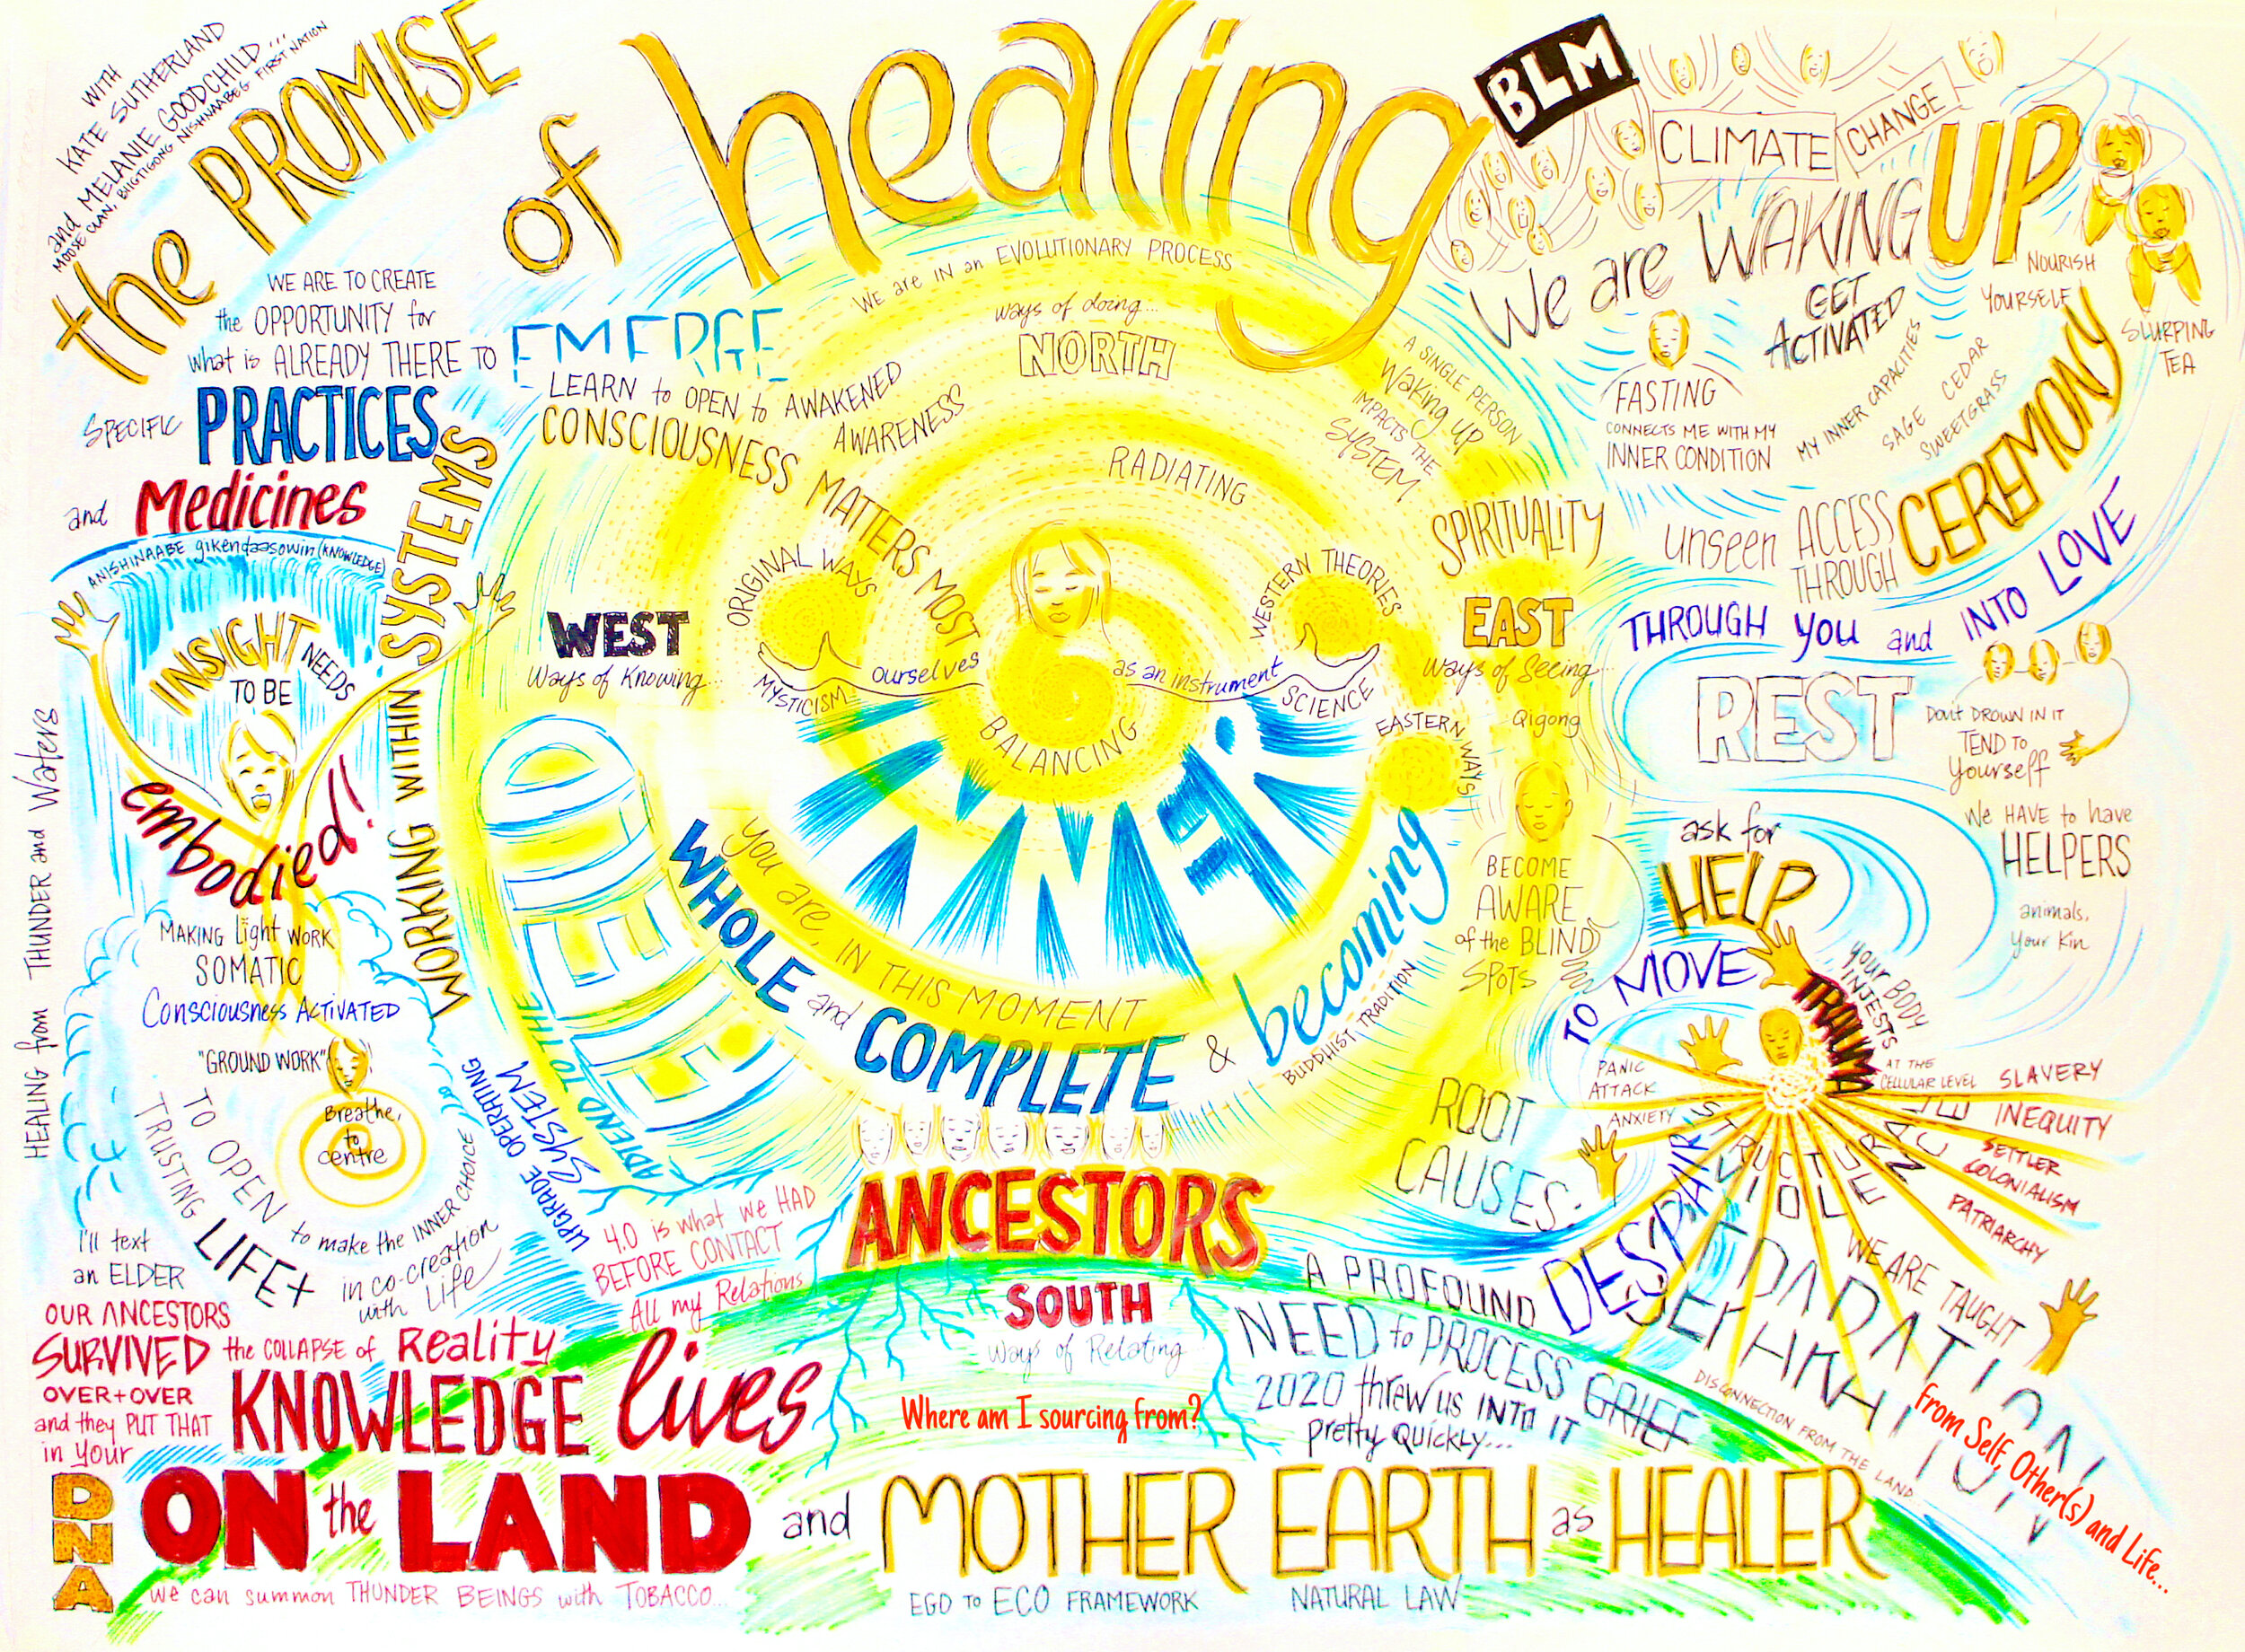 WITH
KATE SUTHERLAND
and MELANIE GOODCHILD...
MOOSE CLAN, BIIGTIGONG NISHNAABEG FIRST NATION
the PROMISE
of healing
WE ARE TO CREATE
the OPPORTUNITY for
what is ALREADY THERE TO
EMERGE
SPECIFIC PRACTICES
and Medicines
ANISHINAABE gikendaasowin (KNOWLEDGE)
INSIGHT NEEDS
TO BE
embodied!!
WORKING WITHIN SYSTEMS
HEALING from THUNDER and Waters
MAKING Light WORK
SOMATIC
Consciousness ACTIVATED
"GROUND WORK"
Breathe,
to
centre
TRUSTING LIFE+
TO OPEN to make the INNER CHOICE
in co-creation
with Life
I'll text
an ELDER
LEARN to OPEN to AWAKENED
AWARENESS
CONSCIOUSNESS MATTERS MOST
We are IN an EVOLUTIONARY PROCESS
ways of doing...
NORTH
RADIATING
A SINGLE PERSON
Waking up
IMPACTS THE
SYSTEM
ORIGINAL WAYS
WESTERN THEORIES
WEST
Ways of Knowing...
MYSTICISM
ourselves
as an instrument
SCIENCE
BALANCING
INNER
SPIRITUALITY
EAST
Ways of Seeing...
Qigong
EASTERN WAYS
you are, IN THIS MOMENT
WHOLE and COMPLETE & becoming
BUDDHIST TRADITION
BECOME
AWARE
of the BLIND
SPOTS
ATTEND TO THE
FIELD
UPGRADE OPERATING
SYSTEM
4.0 is what we HAD
BEFORE CONTACT
All my Relations
ANCESTORS
SOUTH
Ways of Relating
Where am I sourcing from?
BLM
CLIMATE CHANGE
We are WAKING UP
GET
ACTIVATED
MY INNER CAPACITIES
FASTING
CONNECTS ME WITH MY
INNER CONDITION
NOURISH
YOURSELF
SLURPING
TEA
SAGE CEDAR
SWEETGRASS
unseen ACCESS
THROUGH
CEREMONY
THROUGH you and INTO LOVE
REST
Don't DROWN IN IT
TEND TO
Yourself
We HAVE to have
HELPERS
animals,
your Kin
ask for
HELP
TO MOVE
TRAUMA
your BODY
INJESTS
AT THE
CELLULAR LEVEL
PANIC
ATTACK
ANXIETY
DESPAIR
ROOT
CAUSES:
STRUCTURAL
VIOLENCE
SLAVERY
INEQUITY
SETTLER
COLONIALISM
PATRIARCHY
WE ARE TAUGHT
SEPARATION
from Self, Other(s) and Life...
DISCONNECTION FROM THE LAND
A PROFOUND
NEED to PROCESS GRIEF
2020 threw us INTO IT
pretty Quickly...
OUR ANCESTORS
SURVIVED the COLLAPSE of Reality
OVER + OVER
and they PUT THAT
in your
DNA
KNOWLEDGE lives
ON the LAND
and MOTHER EARTH as HEALER
we can summon THUNDER BEINGS with TOBACCO...
EGO TO ECO FRAMEWORK
NATURAL LAW